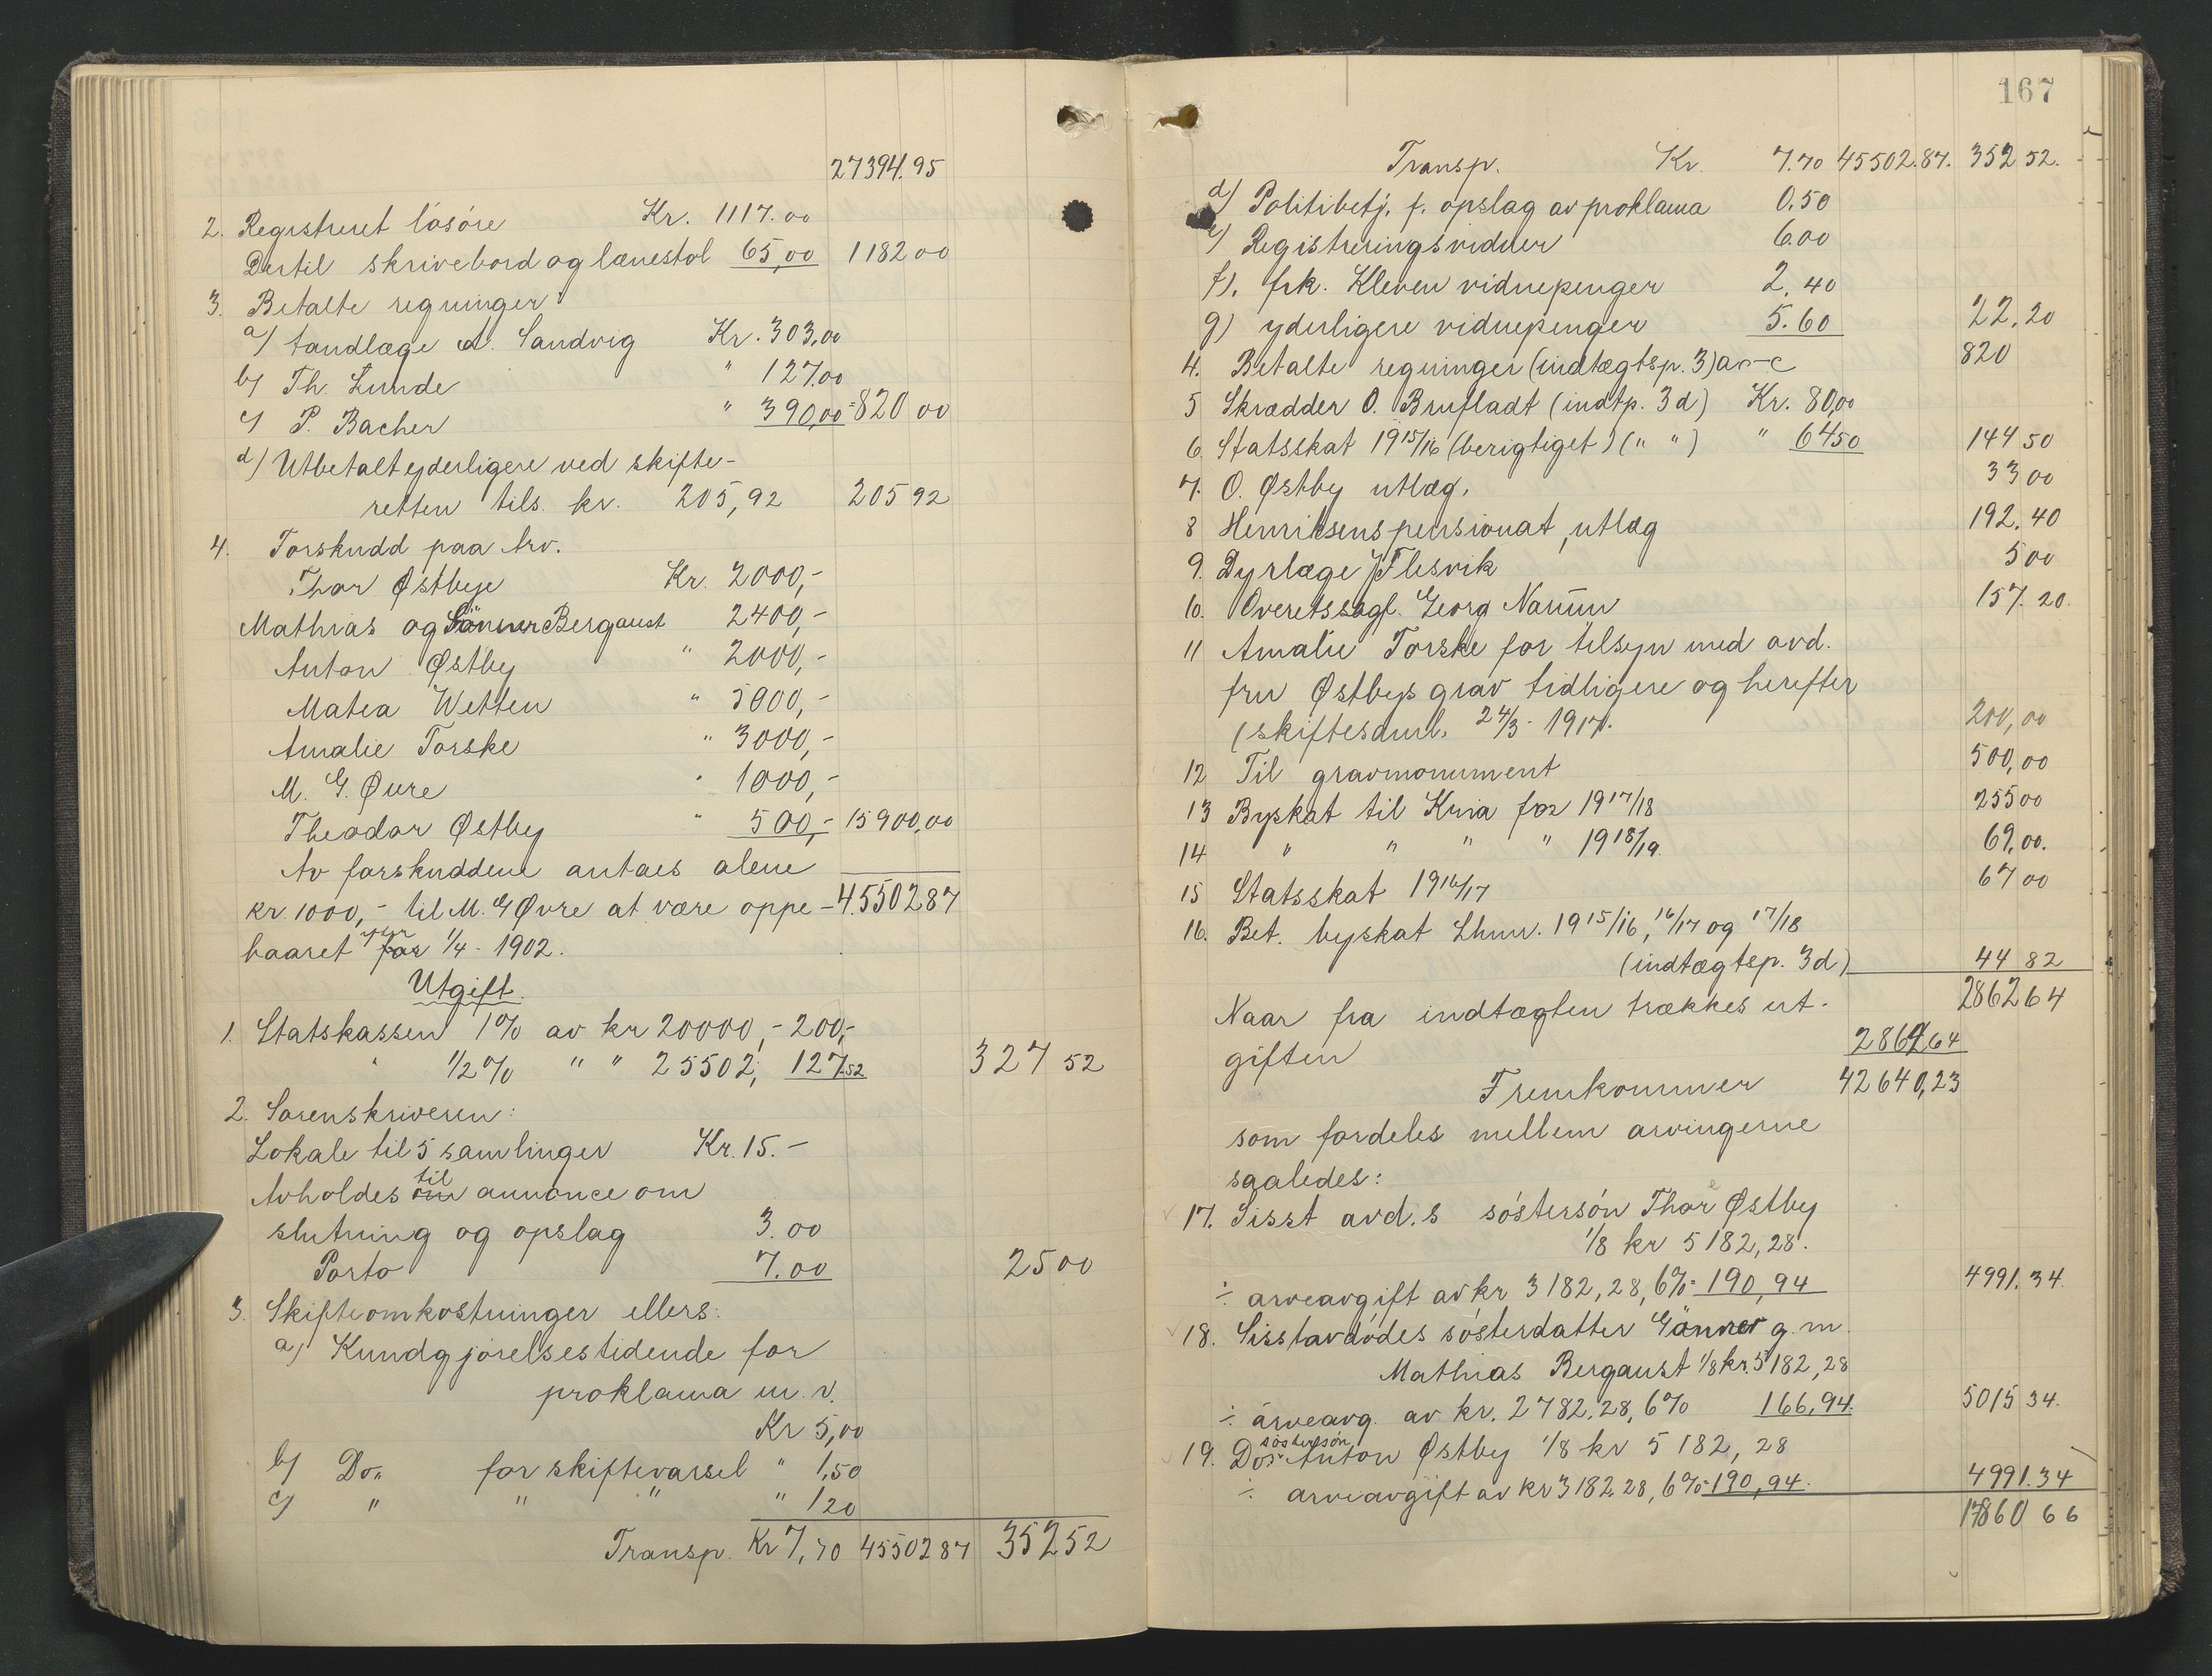 27394.95
2. Registreret lösöre Kr. 1117.00
Dertil skrivebord og lænestol 65,00 1182 00
3. Betalte regninger:
a) tandlæge A. Sandvig Kr. 303,00
b) Th. Lunde " 127.00
c) P. Bacher " 390,00 = 820 00
d) Utbetalt yderligere ved skifte-
retten tils. kr. 205,92 205 92
4. Forskudd paa Arv.
Thor Østbye Kr. 2000,-
Mathias og Bergaust 2400,-
Anton Østby " 2000,-
Matea Wetten " 5000,-
Amalie Torske " 3000,-
M. G. Øvre " 1000,-
Theodor Østby " 500,- 15900,00
Av forskuddene antaes alene
kr. 1000,- til M. G Øvre at være oppe- 45502 87
baaret for 1/4 - 1902.
Utgift.
1. Statskassen 1% av kr 20000,- 200,-
" 1/2% " " 25502, 127.52 327 52
2. Sorenskriveren:
Lokale til 5 samlinger Kr. 15.-
Avholdes om til annonce om
slutning og opslag 3.00
Porto 7.00 25 00
3. Skifteomkostninger ellers:
a) Kundgjörelsestidende for
proklama m. v.
Kr 5,00
b) Do. for skiftevarsel " 1,50
c) " " " " 1 20
Transp. Kr 7,70 45502 87 352 52
167
Transp. Kr. 7.70 45502.87. 352 52.
d) Politibetj. f. opslag av proklama 0.50
e) Registreringsvidner 6.00
f). frk. Kleven vidnepenger 2.40
g) yderligere vidnepenger 5.60 22.20
4. Betalte regninger (indtægtsp. 3) a-c 820
5 Skrædder O. Brufladt (indtp. 3 d) Kr. 80,00
6. Statsskat 1915/16 (berigtiget) (" ") " 64 50 144 50
7. O. Østby utlæg. 33 00
8 Henriksens pensionat, utlæg 192.40
9. Dyrlæge J Flesvik 5 00
10. Overetssagf. Georg 157.20.
11 Amalie Torske for tilsyn med avd.
fru Østbys grav tidligere og herefter
(skiftesaml. 24/3 - 1917. 200,00
12 Til gravmonument 500,00
13 Byskat til Kria for 1917/18 255 00
14 " " " " 1918/19. 69,00.
15 Statsskat 1916/17 67 00
16. Bet. byskat Lhmr. 1915/16, 16/17 og 17/18
(indtægtsp. 3d) 44 82
Naar fra indtægten trækkes ut- 2862 64
giften 2862 64
Fremkommer 42640,23
som fordeles mellem arvingerne
saaledes:
17. Sisst avd.s söstersön Thor Østby
1/8 kr 5182,28.
÷ arveavgift av kr 3182,28, 6% - 190,94 4991.34.
18. Sisstavdödes sösterdatter g. m.
Mathias Bergaust 1/8 kr. 5182,28
÷ arveavg. av kr. 2782.28, 6% 166,94. 5015 34.
19. Dos söstersön Anton Østby 1/8 kr 5182,28
÷ arveavgift av kr 3182.28, 6% - 190,94. 4991.34
17860 66